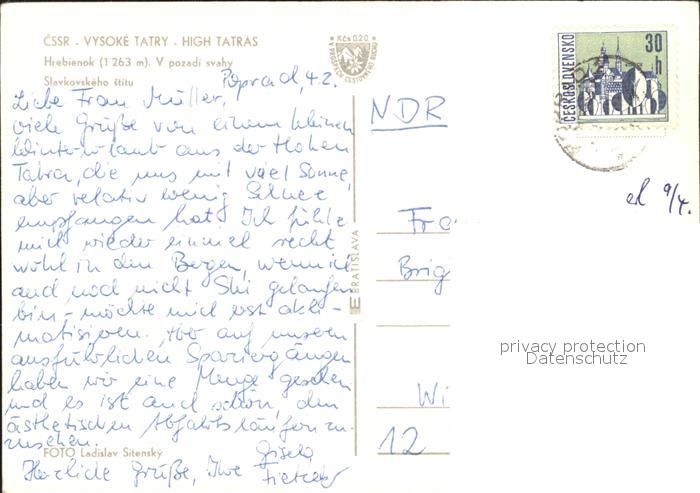 ČSSR - VYSOKÉ TATRY - HIGH TATRAS
Hrebienok (1 263 m). V pozadí svahy
Slavkovského štítu
Kčs 0,20
Poprad, 4.2.
Liebe Frau Müller,
viele Grüße von einem kleinen
Winterurlaub aus der Hohen
Tatra, die uns mit viel Sonne,
aber relativ wenig Schnee
empfangen hat! Ich fühle
mich wieder einmal recht
wohl in den Bergen, wenn ich
auch noch nicht Ski gelaufen
bin - möchte mich erst akli-
matisieren. Aber auf unseren
ausführlichen Spaziergängen
haben wir eine Menge gesehen
und es ist auch schön, den
ästhetischen Abfahrtsläufern zu-
zusehen.
FOTO Ladislav Sitenský
Herzliche Grüße, Ihre Gisela
BRATISLAVA
ČESKOSLOVENSKO
30
h
NDR
9/4.
Fra
Brig
Wi
12
privacy protection
Datenschutz